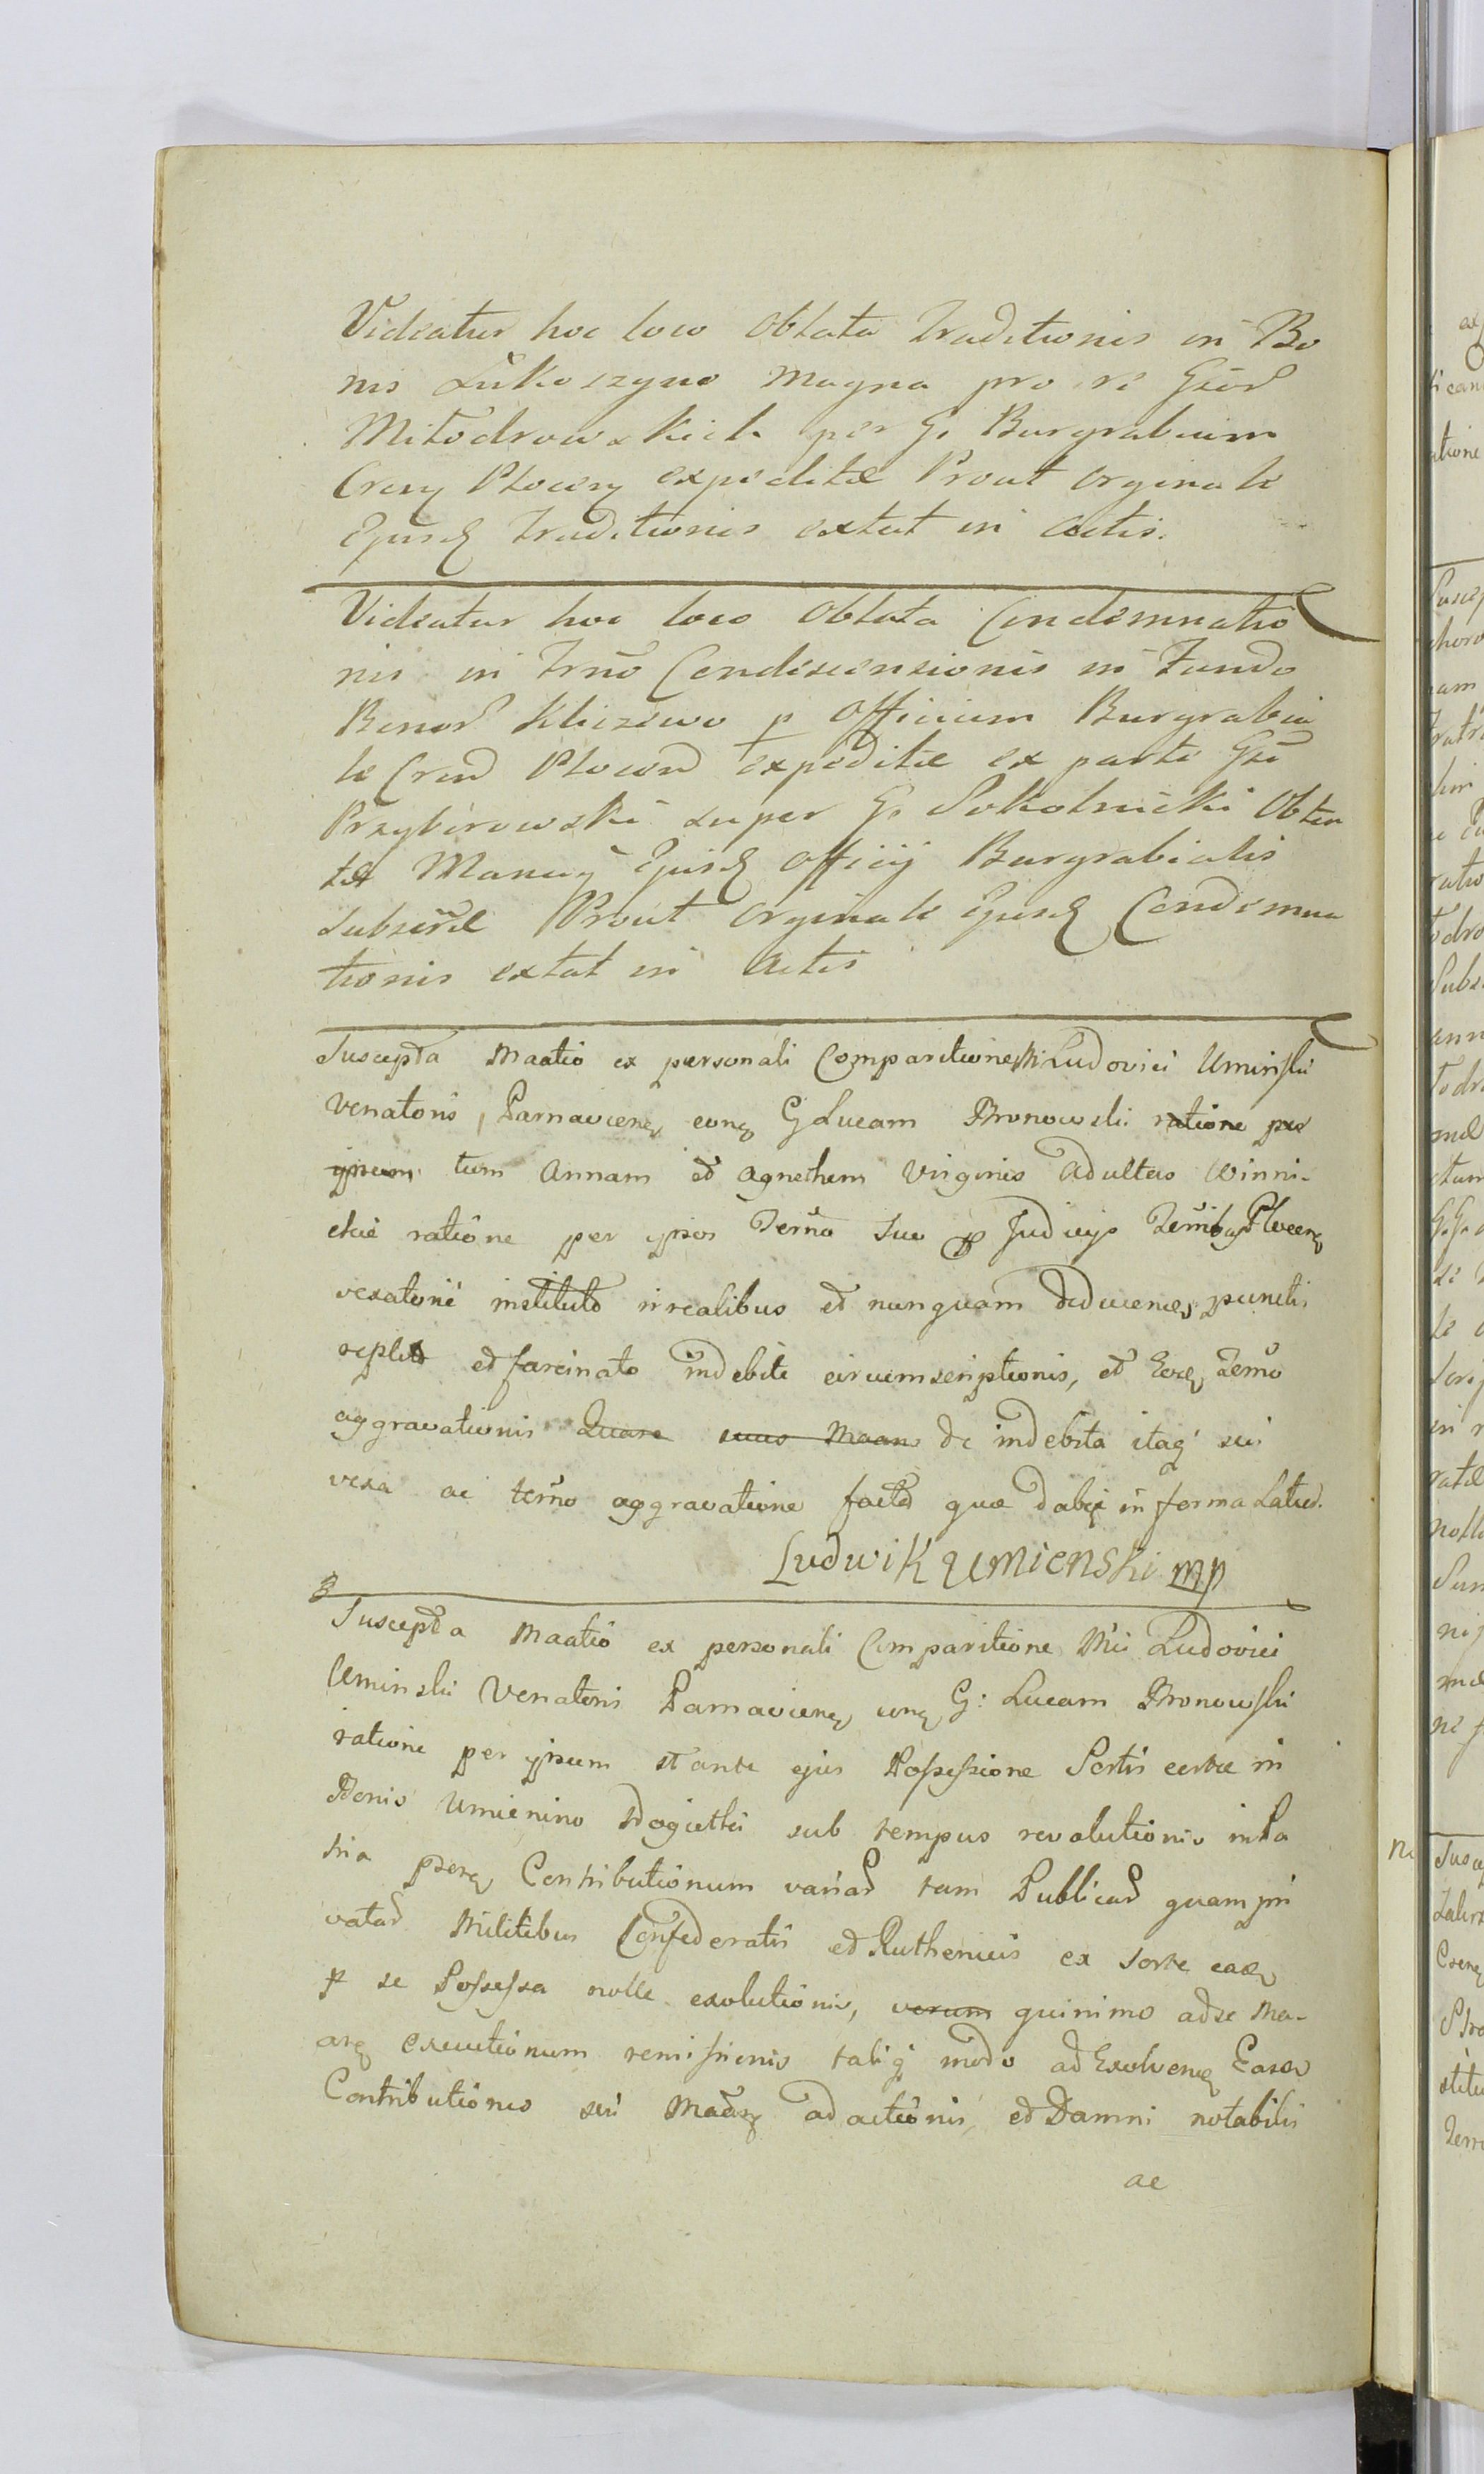 Videatur hoc loco Oblata Traditionis in Bo
nis Łukoszyno magna pro re Gsor
Miłodrowskich per G. Burgrabium
Cresy Plocesy expeditæ Prout orginale
Ejusd Traditionis extat in actis.
Videatur hoc loco Oblata Condemnatio
nis in Trño Condescensionis in Fundo
Bonor Kliczewo p Officium Burgrabia
le Cren Plocen expeditæ ex parte Gsi
Przybirowski super G. Sokolnicki Obten
tæ Manuq Ejusd Officij Burgrabialis
Subscræ Prout orginale Ejusd Condemna
tionis extat in Actis
Suscepta Maatio ex personali Comparitione Mi Ludovici Uminski
Venatoris, Parnavienq conq G Lucam Bronowski ratione per
ipsum tum Annam et Agnethem Virgines adultas Winni-
ckie ratione per ipsos Termo suo p Judicijs Termibq Plocenq
vexatorie instituto irrealibus et nunquam deducenes punctis
repleto et farcinato indebite circumscriptionis, et Eoq Termo
aggravationis Quare suus Maans de indebita itaq sui
vexa ac termo aggravatione facta quæ dabq in forma Latiu.
Ludwik Umienski mp
Suscepta Maatio ex personali Comparitione Mci Ludovici
Uminski Venatoris Parnavienq conq G: Lucam Bronowski
ratione per ipsum stante ejus Possessione Sortis certæ in
Bonis Umienino sub tempus revolutionis inPa
tria pserq Contributionum variar tam Publicar quam pri
vatar Militibus Confederatis et Ruthenicis ex sorte eadq
p se Possessa nolle exolutionis, verum quinimo ad se Ma-
arq executionum remissionis taliq modo ad Exolvenq Easdq
Contributiones seu Maarq adactionis, et Damni notabilis
ac